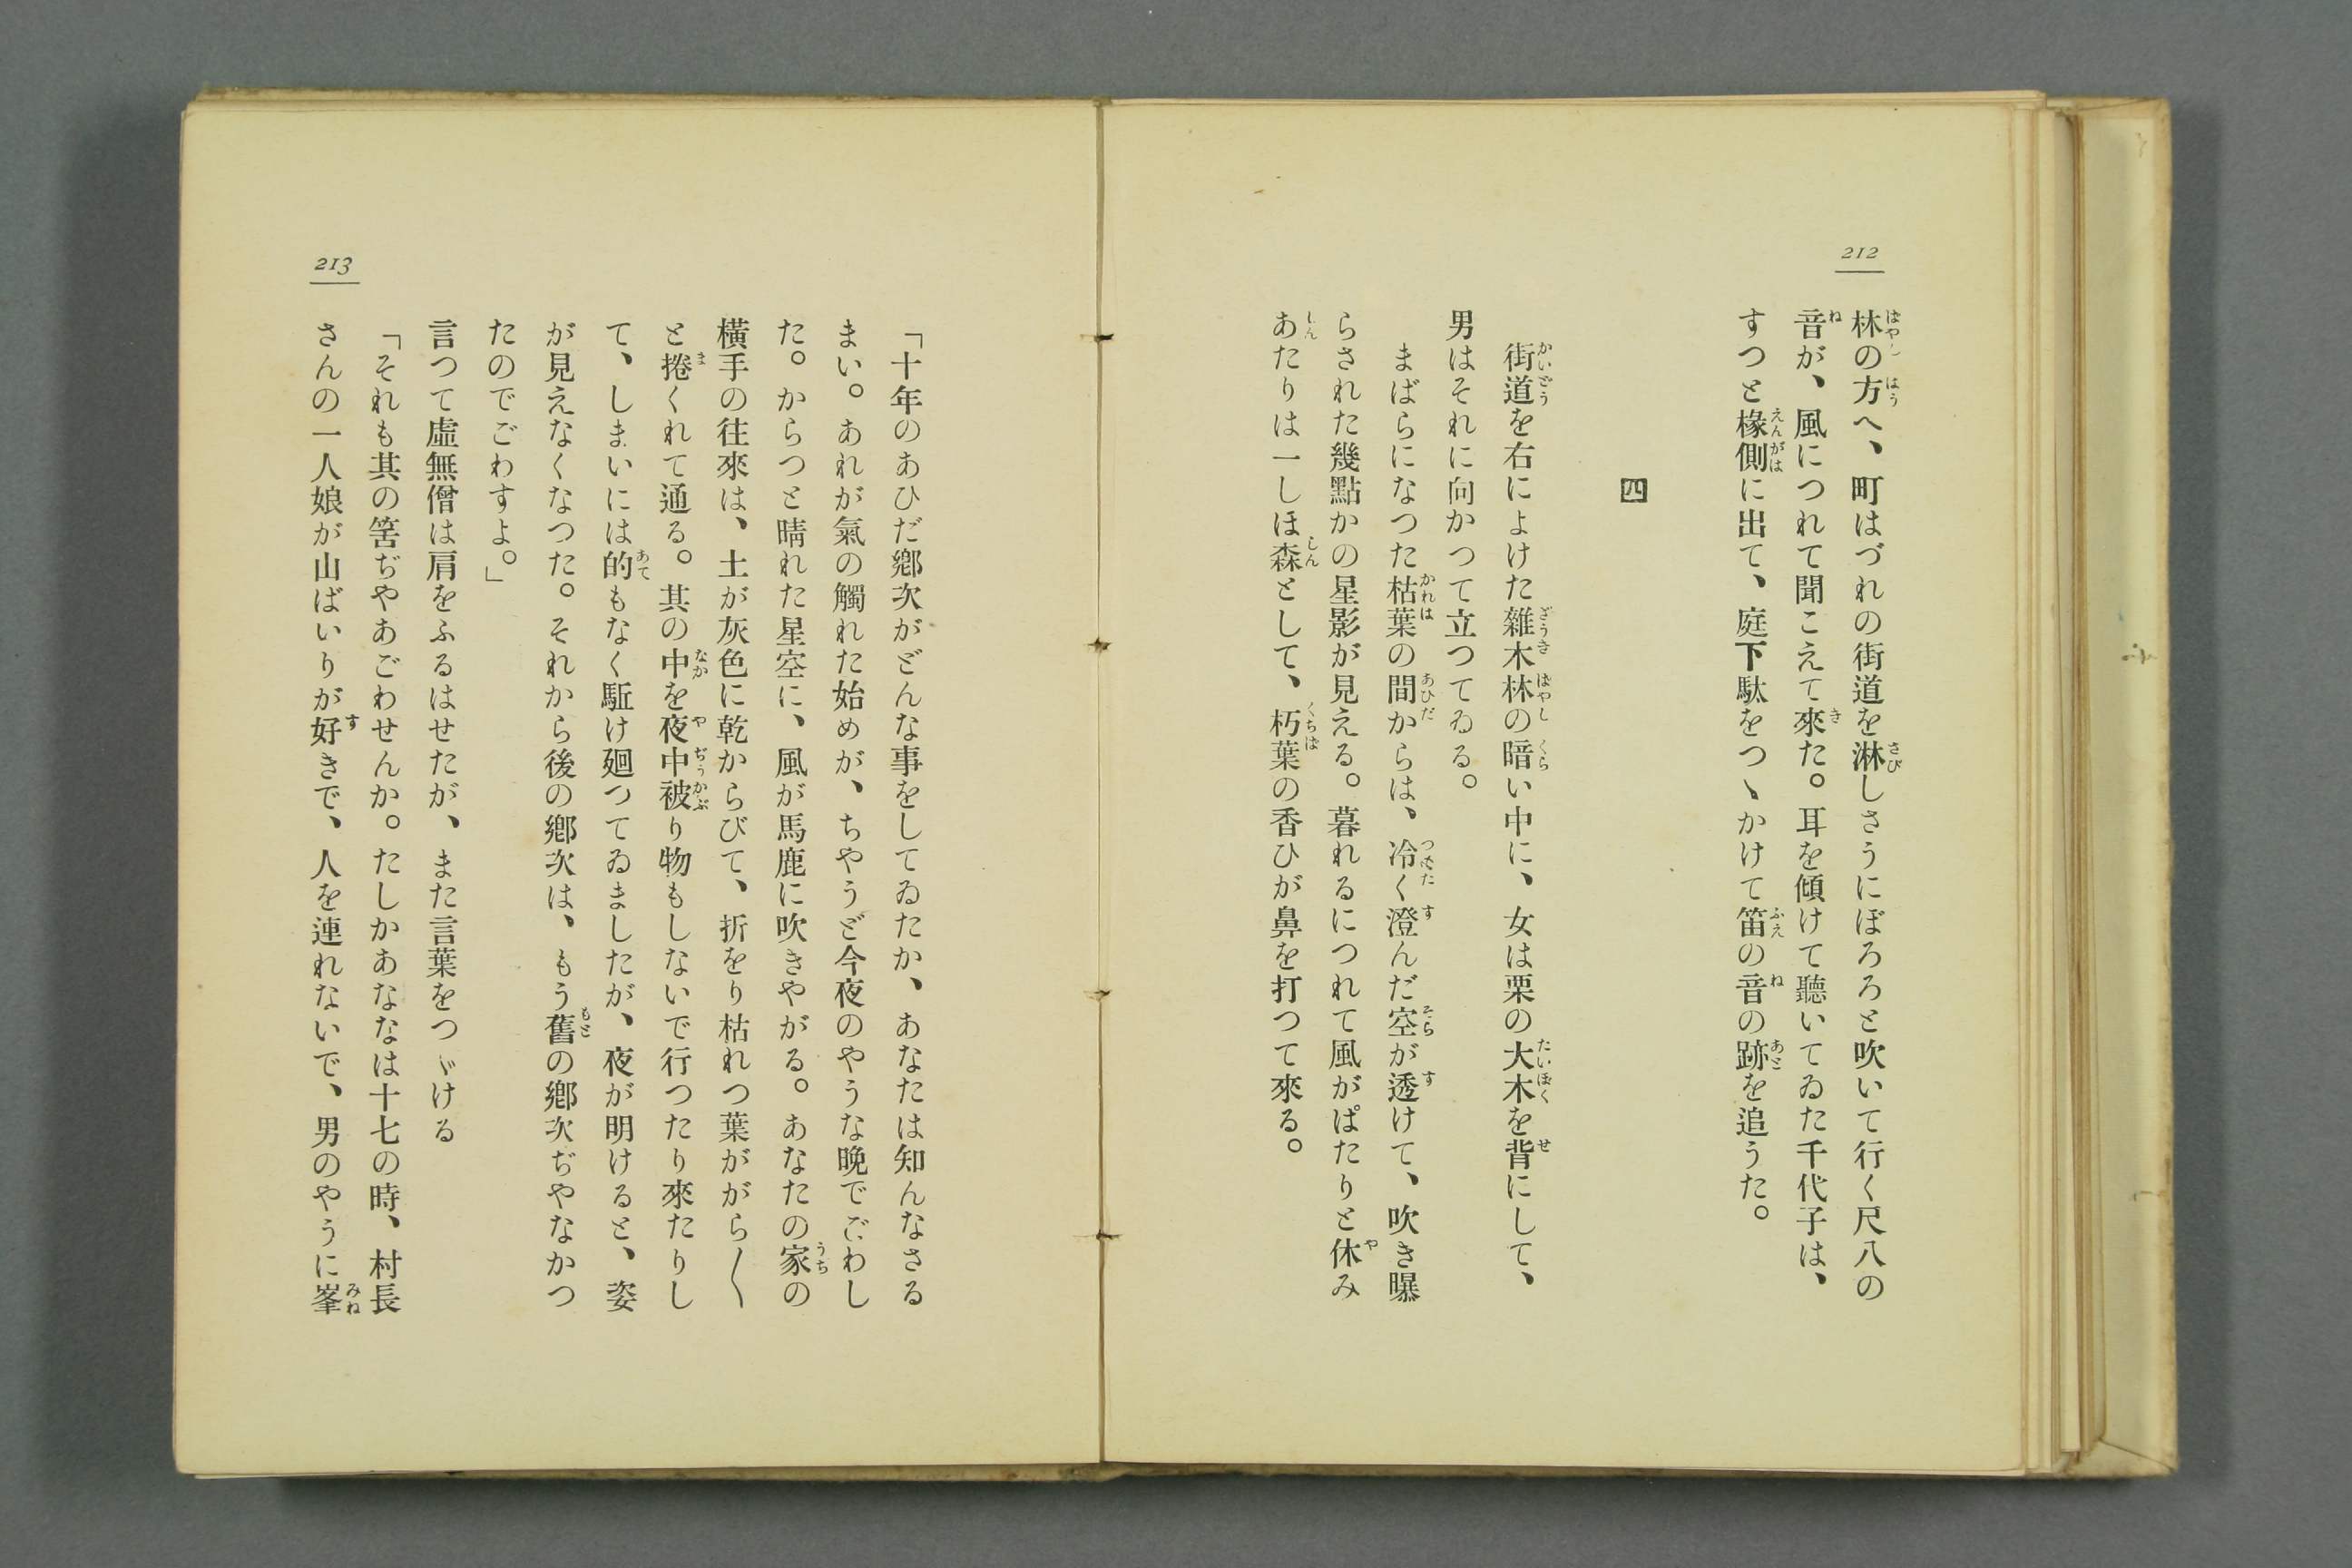 212
林の方へ、町はづれの街道を淋しさうにぼろろと吹いて行く尺八の
音が、風につれて聞こえて來た。耳を傾けて聽いてゐた千代子は、
すつと椽側に出て、庭下駄をつゝかけて笛の音の跡を追うた。
四
街道を右によけた雜木林の暗い中に、女は栗の大木を背にして、
男はそれに向かつて立つてゐる。
まばらになつた枯葉の間からは、冷く澄んだ空が透けて、吹き曝
らされた幾點かの星影が見える。暮れるにつれて風がぱたりと休み
あたりは一しほ森として、朽葉の香ひが鼻を打つて來る。
213
「十年のあひだ鄕次がどんな事をしてゐたか、あなたは知んなさる
まい。あれが氣の觸れた始めが、ちやうど今夜のやうな晚でごわし
た。からつと晴れた星空に、風が馬鹿に吹きやがる。あなたの家の
橫手の往來は、土が灰色に乾からびて、折をり枯れつ葉ががら〱
と捲くれて通る。其の中を夜中被り物もしないで行つたり來たりし
て、しまいには的もなく駈け廻つてゐましたが、夜が明けると、姿
が見えなくなつた。それから後の鄕次は、もう舊の鄕次ぢやなかつ
たのでごわすよ。」
言つて虛無僧は肩をふるはせたが、また言葉をつゞける
「それも其の筈ぢやあごわせんか。たしかあなたは十七の時、村長
さんの一人娘が山ばいりが好きで、人を連れないで、男のやうに峯